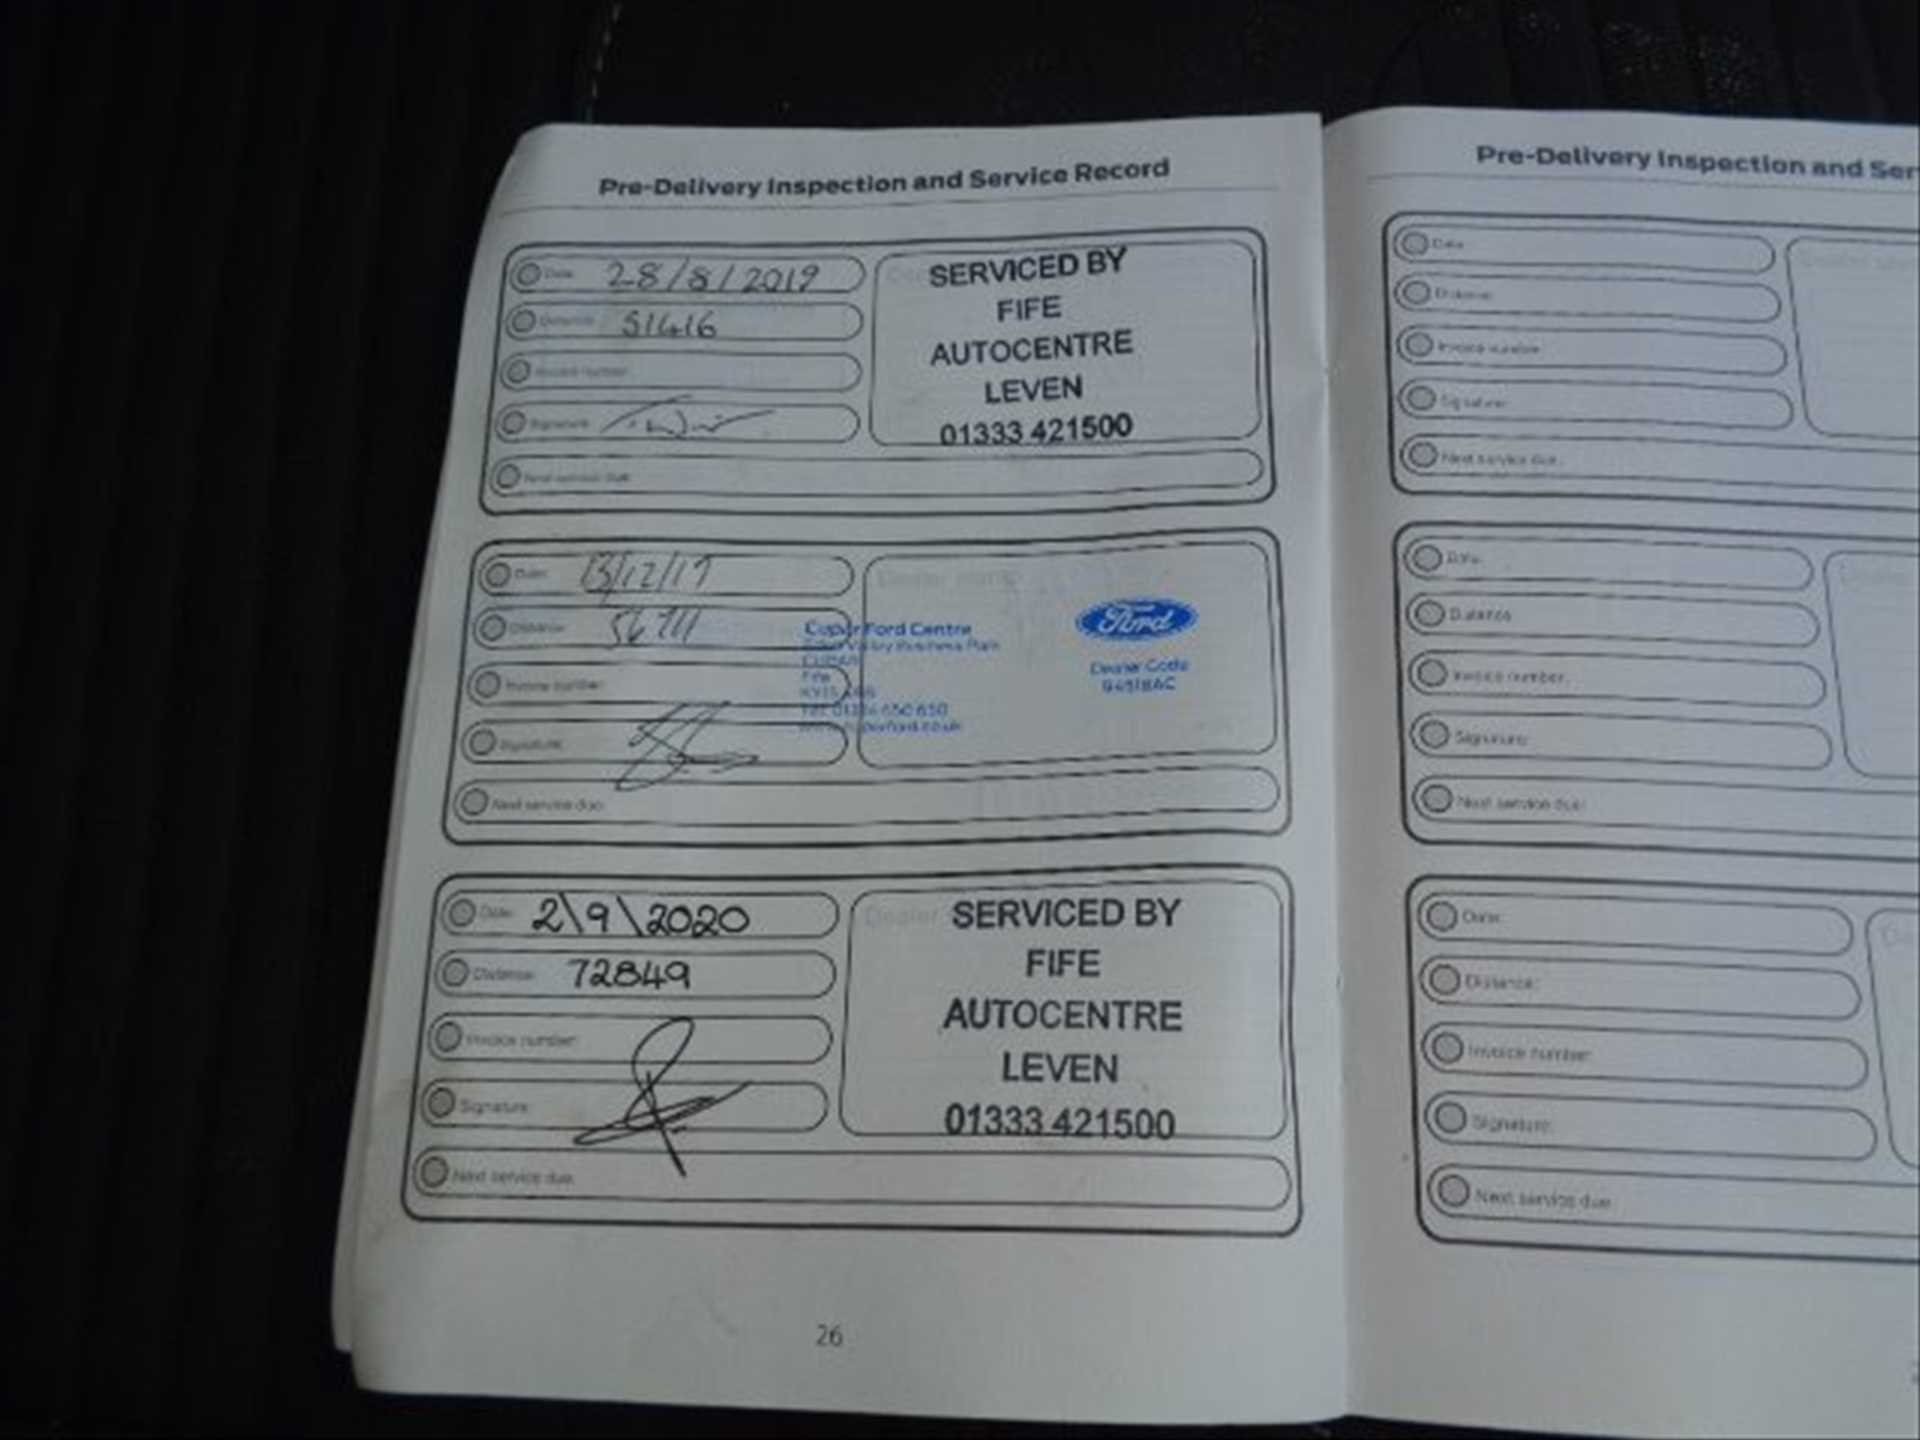 Pre-Delivery Inspection and Service Record
Date: 28/8/2019
Distance: 51416
Invoice number:
Signature:
Next service due:
SERVICED BY
FIFE
AUTOCENTRE
LEVEN
01333 421500
Date: 13/12/19
Distance:
Invoice number:
Signature:
Next service due:
Dealer stamp
Cupar Ford Centre
Valley Business Park
CUPAR
Fife
Ford
Dealer Code
Date: 2\9\2020
Distance: 72849
Invoice number:
Signature:
Next service due:
Dealer
SERVICED BY
FIFE
AUTOCENTRE
LEVEN
01333 421500
26
Pre-Delivery Inspection and Ser
Date:
Distance:
Invoice number:
Signature:
Next service due:
Dealer
Date:
Distance:
Invoice number:
Signature:
Next service due:
Dealer
Date:
Distance:
Invoice number:
Signature:
Next service due: